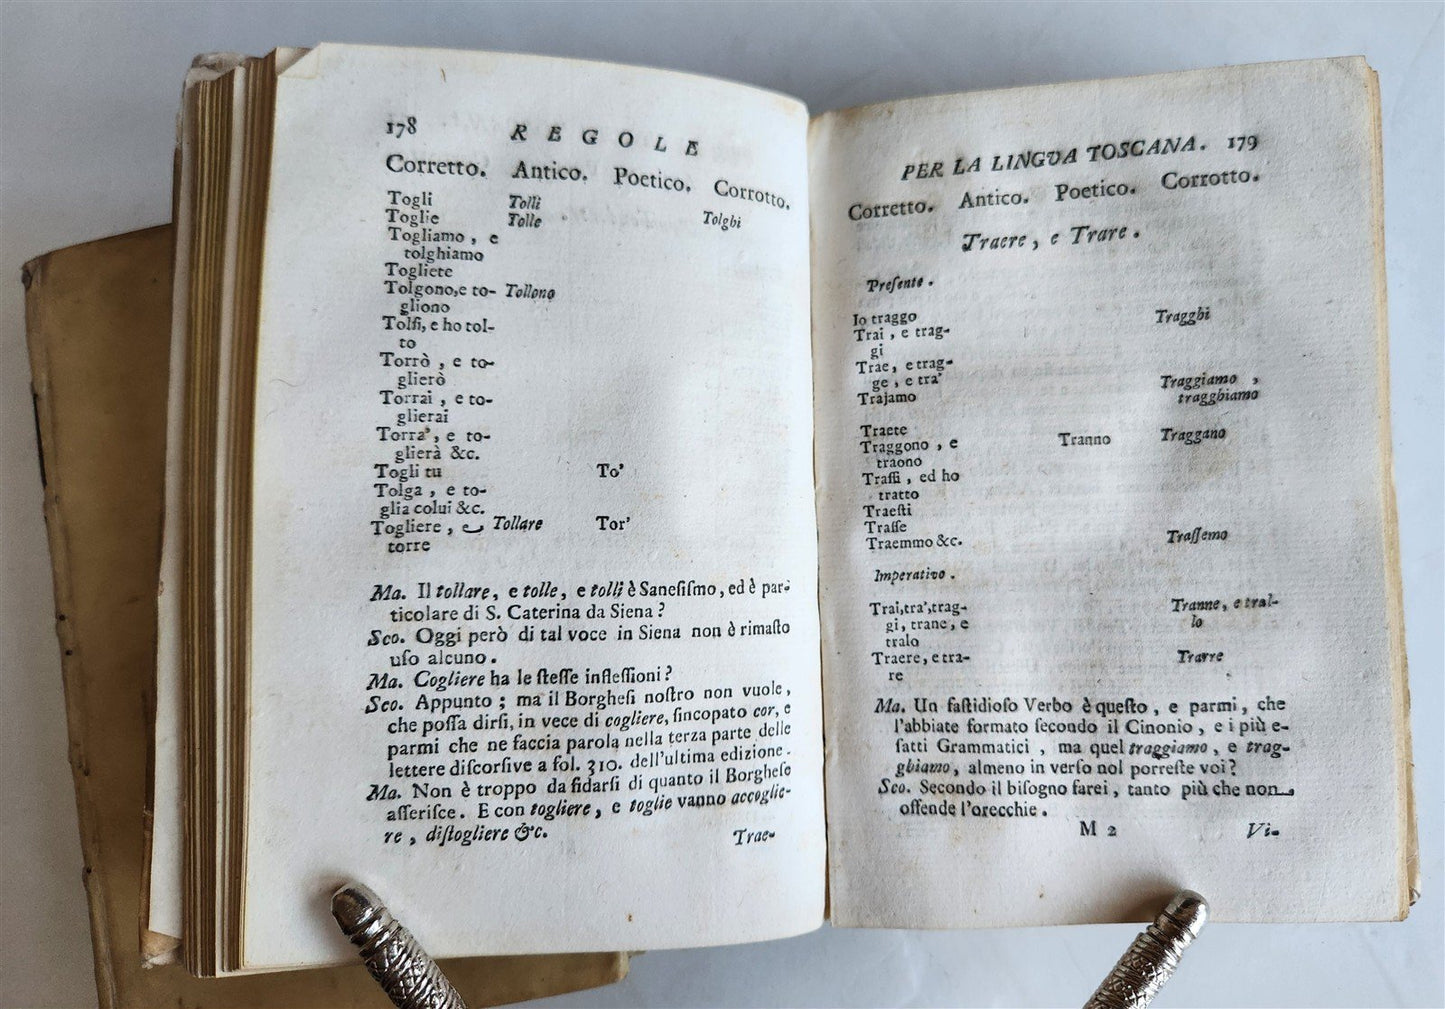 178 REGOLE
Corretto. Antico. Poetico. Corrotto.
Togli Tolli
Toglie Tolle Tolghi
Togliamo, e
tolghiamo
Togliete
Tolgono, e to- Tollono
gliono
Tolſi, e ho tol-
to
Torrò, e to-
glierò
Torrai, e to-
glierai
Torra', e to-
glierà &c.
Togli tu To'
Tolga, e to-
glia colui &c.
Togliere, e Tollare Tor'
torre
Ma. Il tollare, e tolle, e tolli è Saneſiſmo, ed è par-
ticolare di S. Caterina da Siena?
Sco. Oggi però di tal voce in Siena non è rimaſto
uſo alcuno.
Ma. Cogliere ha le ſteſſe infleſſioni?
Sco. Appunto; ma il Borgheſi noſtro non vuole,
che poſſa dirſi, in vece di cogliere, ſincopato cor, e
parmi che ne faccia parola nella terza parte delle
lettere diſcorſive a fol. 310. dell'ultima edizione.
Ma. Non è troppo da fidarſi di quanto il Borgheſe
aſſeriſce. E con togliere, e toglie vanno accoglie-
re, diſtogliere &c.
Trae-
PER LA LINGVA TOSCANA. 179
Corretto. Antico. Poetico. Corrotto.
Traere, e Trare.
Preſente.
Io traggo Tragghi
Trai, e trag-
gi
Trae, e trag-
ge, e tra'
Traggiamo,
Trajamo tragghiamo
Traete
Traggono, e Tranno Traggano
traono
Traſſi, ed ho
tratto
Traeſti
Traſſe
Traemmo &c. Traſſemo
Imperativo.
Trai, tra', trag- Tranne, e tral-
gi, trane, e lo
tralo
Traere, e tra- Trarre
re
Ma. Un faſtidioſo Verbo è queſto, e parmi, che
l'abbiate formato ſecondo il Cinonio, e i più e-
ſatti Grammatici, ma quel traggiamo, e trag-
ghiamo, almeno in verſo nol porreſte voi?
Sco. Secondo il biſogno farei, tanto più che non
offende l'orecchie.
M 2 Vi-